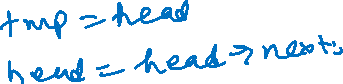 tmp = head
head = head → next;